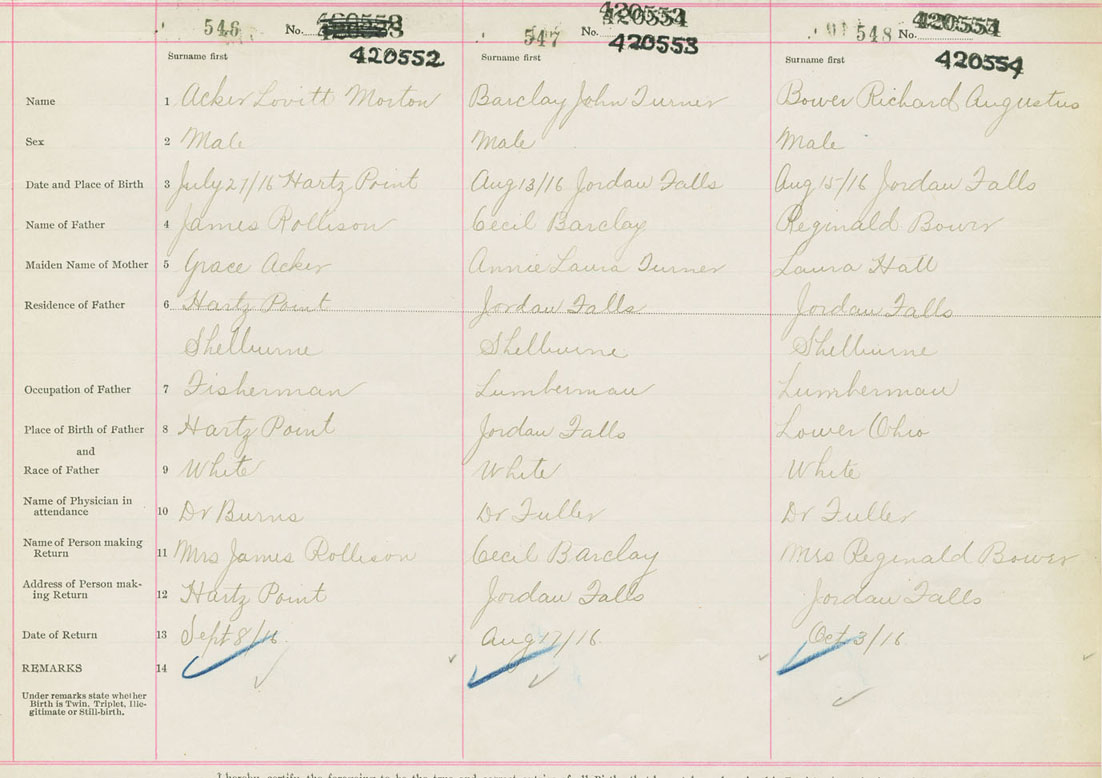 546 No. 420552
547 No. 420553
548 No. 420554
Surname first Surname first Surname first
Name 1 Acker Lovitt Morton Barclay John Turner Bower Richard Augustus
Sex 2 Male Male Male
Date and Place of Birth 3 July 27/16 Hartz Point Aug 13/16 Jordan Falls Aug 15/16 Jordan Falls
Name of Father 4 James Rollison Cecil Barclay Reginald Bower
Maiden Name of Mother 5 Grace Acker Annie Laura Turner Laura Hall
Residence of Father 6 Hartz Point Jordan Falls Jordan Falls
Shelburne Shelburne Shelburne
Occupation of Father 7 Fisherman Lumberman Lumberman
Place of Birth of Father 8 Hartz Point Jordan Falls Lower Ohio
and
Race of Father 9 White White White
Name of Physician in
attendance 10 Dr Burns Dr Fuller Dr Fuller
Name of Person making
Return 11 Mrs James Rollison Cecil Barclay Mrs Reginald Bower
Address of Person mak-
ing Return 12 Hartz Point Jordan Falls Jordan Falls
Date of Return 13 Sept 8/16. Aug 17/16. Oct 3/16
REMARKS 14
Under remarks state whether
Birth is Twin, Triplet, Ille-
gitimate or Still-birth.